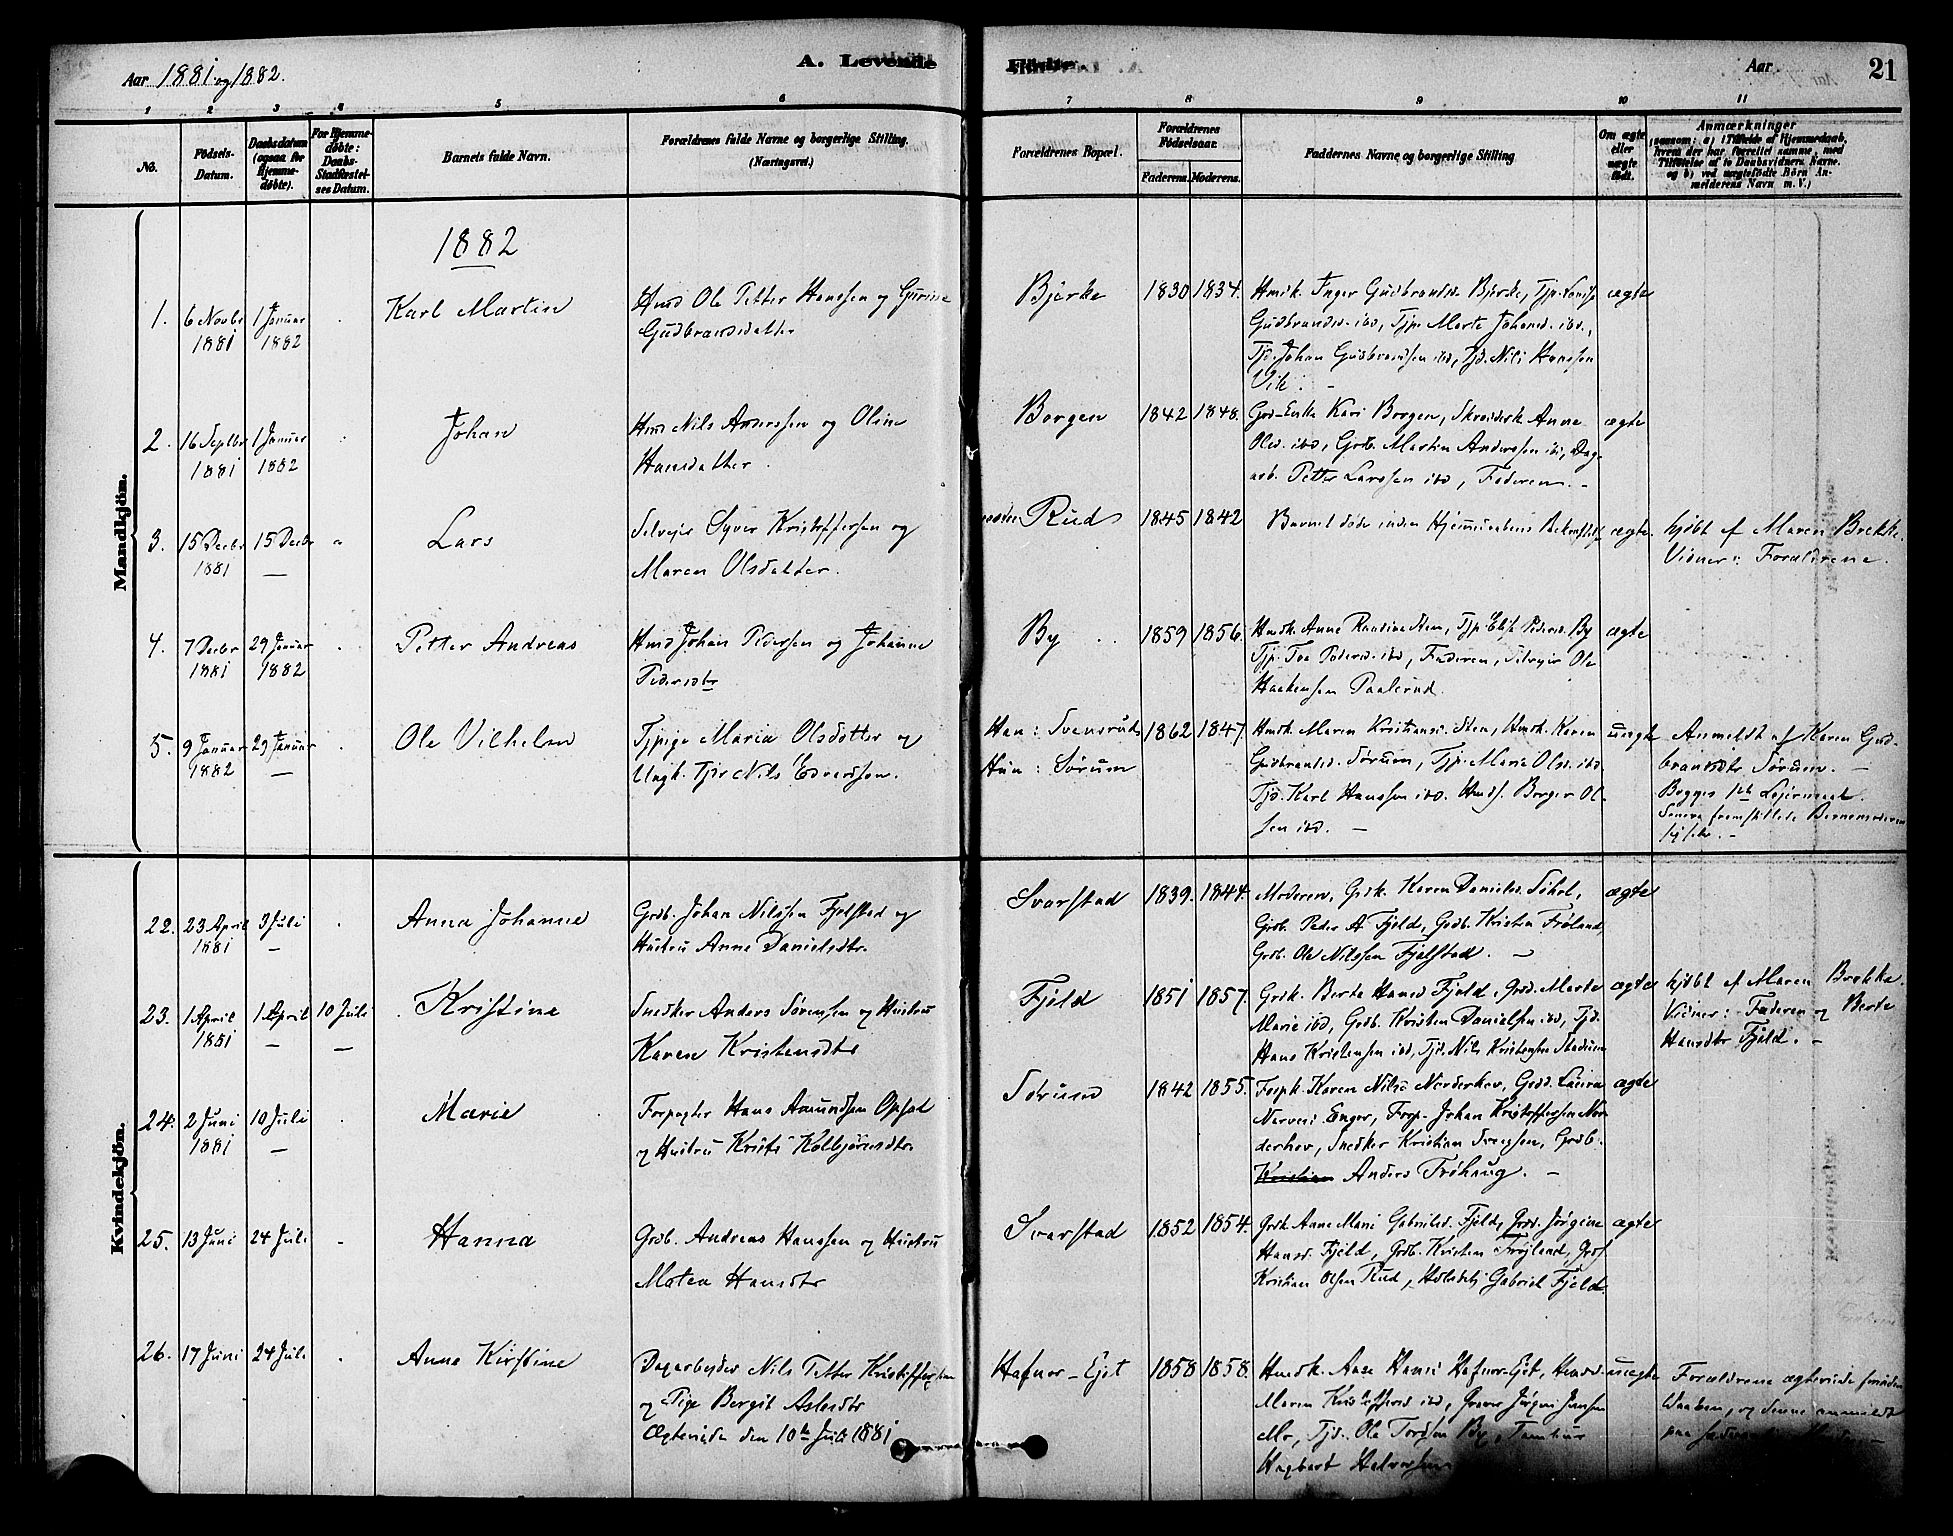 Aar 1881 og 1882.
A. Levende
Fødte.
Aar
21
1 2 3 4 5 6 7 8 9 10 11
No.
Födsels-Datum.
Daabsdatum (ogsaa for Hjemme-döbte).
For Hjemme-døbte: Daabs-Stadfæstel-ses Datum.
Barnets fulde Navn.
Forældrenes fulde Navne og borgerlige Stilling. (Næringsvei.)
Forældrenes Bopæl.
Forældrenes Födselsaar.
Faderens. Moderens.
Faddernes Navne og borgerlige Stilling
Om ægte eller uægte födt.
Anmærkninger
(saasom: a) i Tilfælde af Hjemmedaab, hvem der har forrettet samme, med Tilföielse af to Daabsvidners Navne. og b) ved uægtefödte Börn An-melderens Navn m. V.)
Mandkjön.
1882
1. 6 Novbr 1881 1 Januar 1882 Karl Martin
Hmd Ole Petter Hansen og Gurine
Gudbrandsdatter
Bjerke 1830 1834.
Hmdk. Inger Gudbrandsd. Bjerke, Tjp.
Gudbrandsd. ibd, Tjp. Marte Johansd. ibd.,
Tjd. Johan Gudbrandsen ibd, Tjd. Nils Hanssen
Vik. -
ægte
2. 16 Septbr 1881 1 Januar 1882 Johan
Hmd Nils Anderssen og Oline
Hansdatter.
Borgen 1842 1848.
Kari Borgen, Anne
Olsd. ibd, Grdb. Martin Anderssen ibd, Dag-
arb. Petter Larssen ibd, Faderen. -
ægte
3. 15 Decbr 1881 15 Decbr — Lars
Selveier Syver Kristoffersen og
Maren Olsdatter.
Rud 1845 1842
Barnet døde inden Hjemmedaabens
ægte.
hjdbt af Maren Brekke.
Vidner: Forældrene.
4. 7 Decbr 1881 29 Januar 1882 Petter Andreas
Hmd Johan Pedersen og Johanne
Pedersdtr
By 1859 1856.
Hmdk. Anne Sten, Tjp. Elise Pedersd. By
Tjp. Pedersd. ibd, Faderen, Selveier Ole
Haakensen Paalerud.
ægte
5. 9 Januar 1882 29 Januar — Ole Vilhelm
Tjpige Maria Olsdatter og
Ungk. Tjd Nils Edvardsen.
Han: Svensrud
Hun: Sørum
1862 1847.
Hmdk. Maren Kristiansd. Sten, Hmdk. Karen
Gudbrandsd. Sørum, Tjp. Marie Olsd. ibd.
Tjd. Karl Hanssen ibd. Hmds. Borger Ol-
sen ibd. —
uægte
Anmeldt af Karen Gud-
brandsdtr Sørum. —
Begges 1ste Leiermaal.
Kvindekjön.
22. 23 April 1881 3 Juli — Anna Johanne
Grdb. Johan Nilssen Fjelstad og
Hustru Anne Danielsdtr.
Svarstad 1839. 1844.
Moderen, Grdk. Karen Danielsd. Søhol,
Grdb. Peder A Fjeld, Grdb. Kristen Frøland,
Grdb. Ole Nilssen Fjelstad. —
ægte
23. 1 April 1881 1 April — 10 Juli — Kristine
Snedker Anders Sørensen og Hustru
Karen Kristensdtr
Fjeld 1851 1857.
Grdk. Berte Hansd Fjeld, Grdd. Marte
Marie ibd, Grdb. Kristen Danielsen ibd, Tjd.
Hans Kristensen ibd, Tjd. Nils Kristensen Stadum
ægte
hjdbt af Maren Brekke
Vidner: Faderen og Berte
Hansdtr Fjeld. -
24. 2 Juni 1881 10 Juli — Marie
Forpagter Hans Amundsen Opsal
og Hustru Kristi Kolbjørnsdtr.
Sørum 1842 1855.
Forpk. Karen Nilsd Norderhov, Grdd. Laura
Enger, Forp. Johan Kristoffersen Nor-
derhov, Snedker Kristian Svensen, Grdb.
Kristian Anders Frøhaug. —
ægte
25. 13 Juni 24 Juli Hanna
Grdb. Andreas Hanssen og Hustru
Matea Hansdtr
Svarstad 1852 1854.
Grdk Anne Mari Gabrielsd. Fjeld, Grdd. Jørgine
Hansd. Fjeld, Grdb. Kristen Frøjland, Grds
Kristian Olsen Rud, Gabriel Fjeld.
ægte
26. 17 Juni 24 Juli Anne Kirstine
Dagarbejder Nils Petter Kristoffersen
og Pige Bergit Aslesdtr
Ægteviede den 10de Juli 1881
Hafnor-Ejet 1858 1858.
Hmdk. Aase Hansd Hafnor-Ejet, Hmdd.
Maren Kristoffersd ibd, Jørgen Jensen
Mo, Tjd. Ole Torsten By,
Hagbart Halvorsen
uægte
Forældrene ægteviede forinden
Daaben, og denne anmeldt
paa